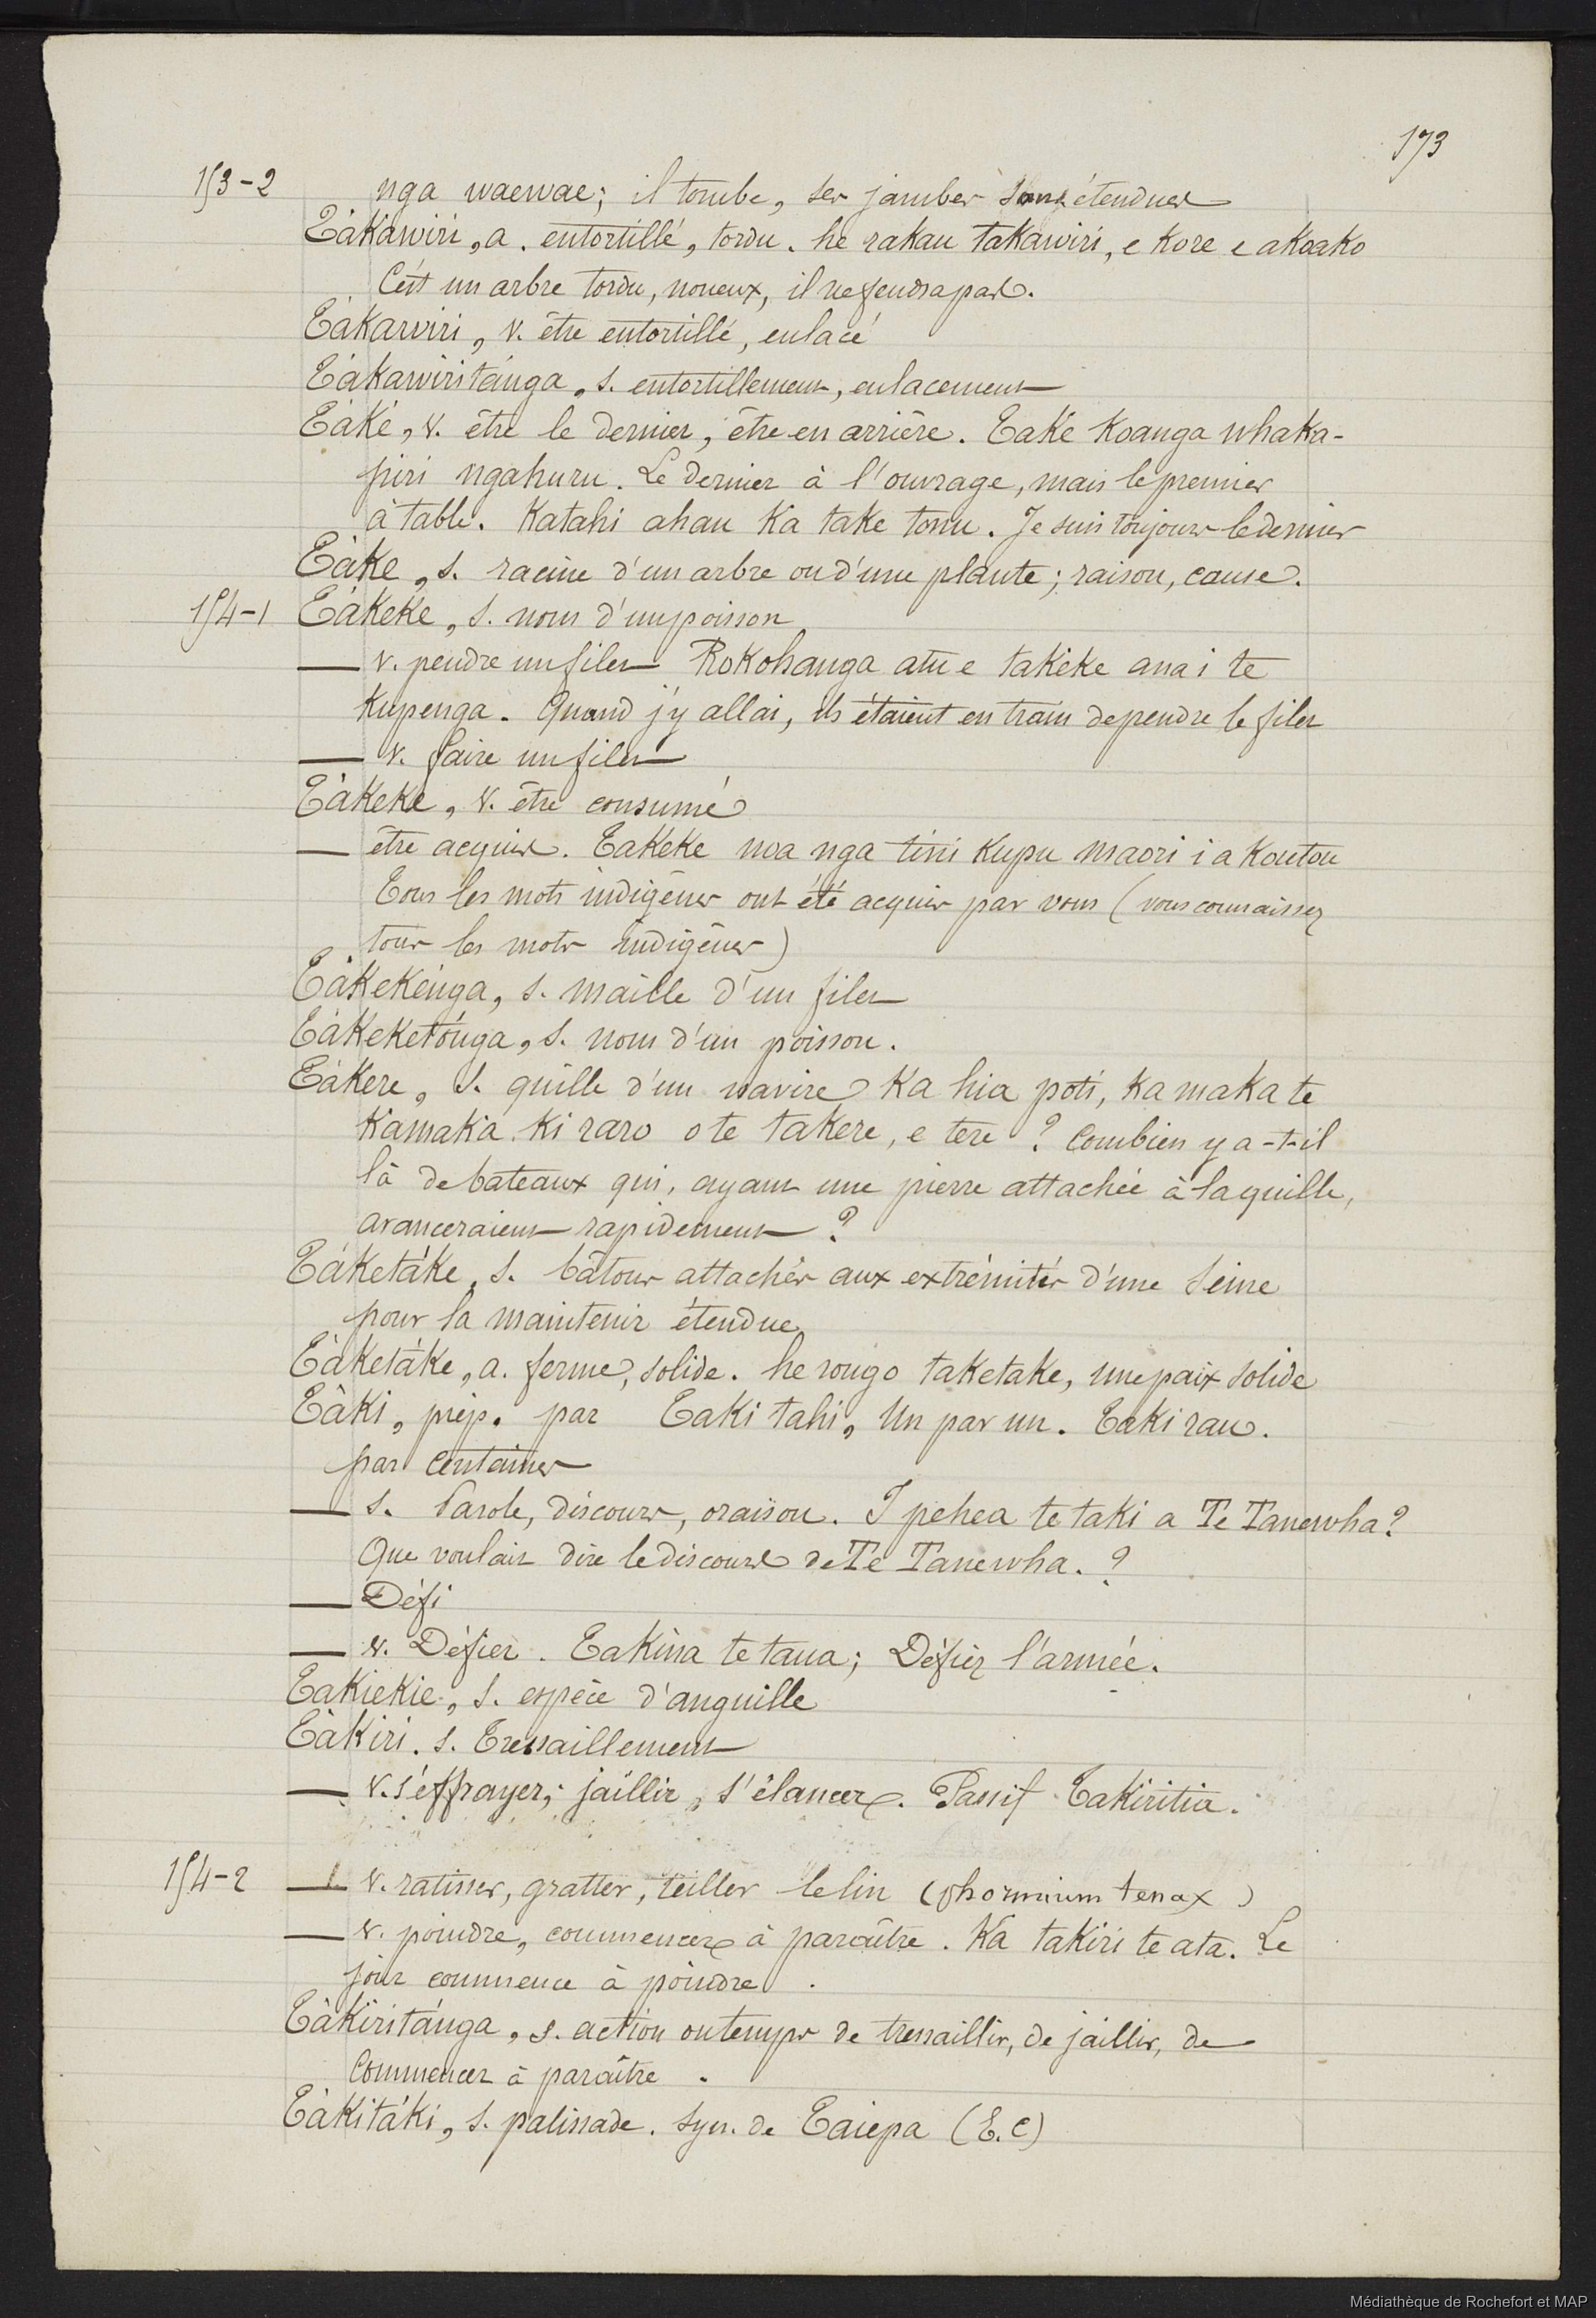 173
153-2 nga waewae; il tombe, ses jambes sont étendues
Tàkawiri, a. entortillé, tordu. he rakau takawiri, e kore e akoako
C'est un arbre tordu, noueux, il ne fendra pas.
Tàkawiri, v. être entortillé, enlacé
Tàkawiritánga, s. entortillement, enlacement
Tàké, v. être le dernier, être en arrière. Také koanga whaka-
piri ngahuru. Le dernier à l'ouvrage, mais le premier
à table. Katahi ahau ka take tonu. Je suis toujours le dernier
Tàke, s. racine d'un arbre ou d'une plante; raison, cause.
154-1 Tàkeke, s. nom d'un poisson
— v. pendre un filet Rokohanga atu e takeke ana i te
kupenga. Quand j'y allai, ils étaient en train de pendre le filet
— v. faire un filet
Tàkeke, v. être consumé
— être acquis. Takeke noa nga tini kupu maori i a koutou
Tous les mots indigènes ont été acquis par vous (vous connaissez
tous les mots indigènes)
Tàkekénga, s. maille d'un filet
Tàkeketónga, s. nom d'un poisson.
Tàkere, s. quille d'un navire Ka hia poti, ka maka te
kamaka ki raro o te takere, e tere ? Combien y a-t-il
là de bateaux qui, ayant une pierre attachée à la quille,
avanceraient rapidement ?
Tàketàke, s. bâtons attachés aux extrémités d'une seine
pour la maintenir étendue
Tàketàke, a. ferme, solide. he rongo taketake, une paix solide
Tàki, prép. par Taki tahi, Un par un. Taki rau.
par centaines
— s. Parole, discours, oraison. I pehea te taki a Te Tanewha?
Que voulait dire le discours de Te Tanewha. ?
— Défi
— v. Défier. Takina te taua; Défiez l'armée.
Takiekie, s. espèce d'anguille
Tàkiri. s. Tressaillement
— v. s'effrayer; jaillir, s'élancer. Passif Takiritia.
154-2 — v. ratisser, gratter, teiller le lin (phormium tenax)
— v. poindre, commencer à paraître. Ka takiri te ata. Le
jour commence à poindre.
Tàkiritánga, s. action ou temps de tressaillir, de jaillir, de
Commencer à paraître.
Tàkitáki, s. palissade. Syn. de Taiepa (E.C)
Médiathèque de Rochefort et MAP